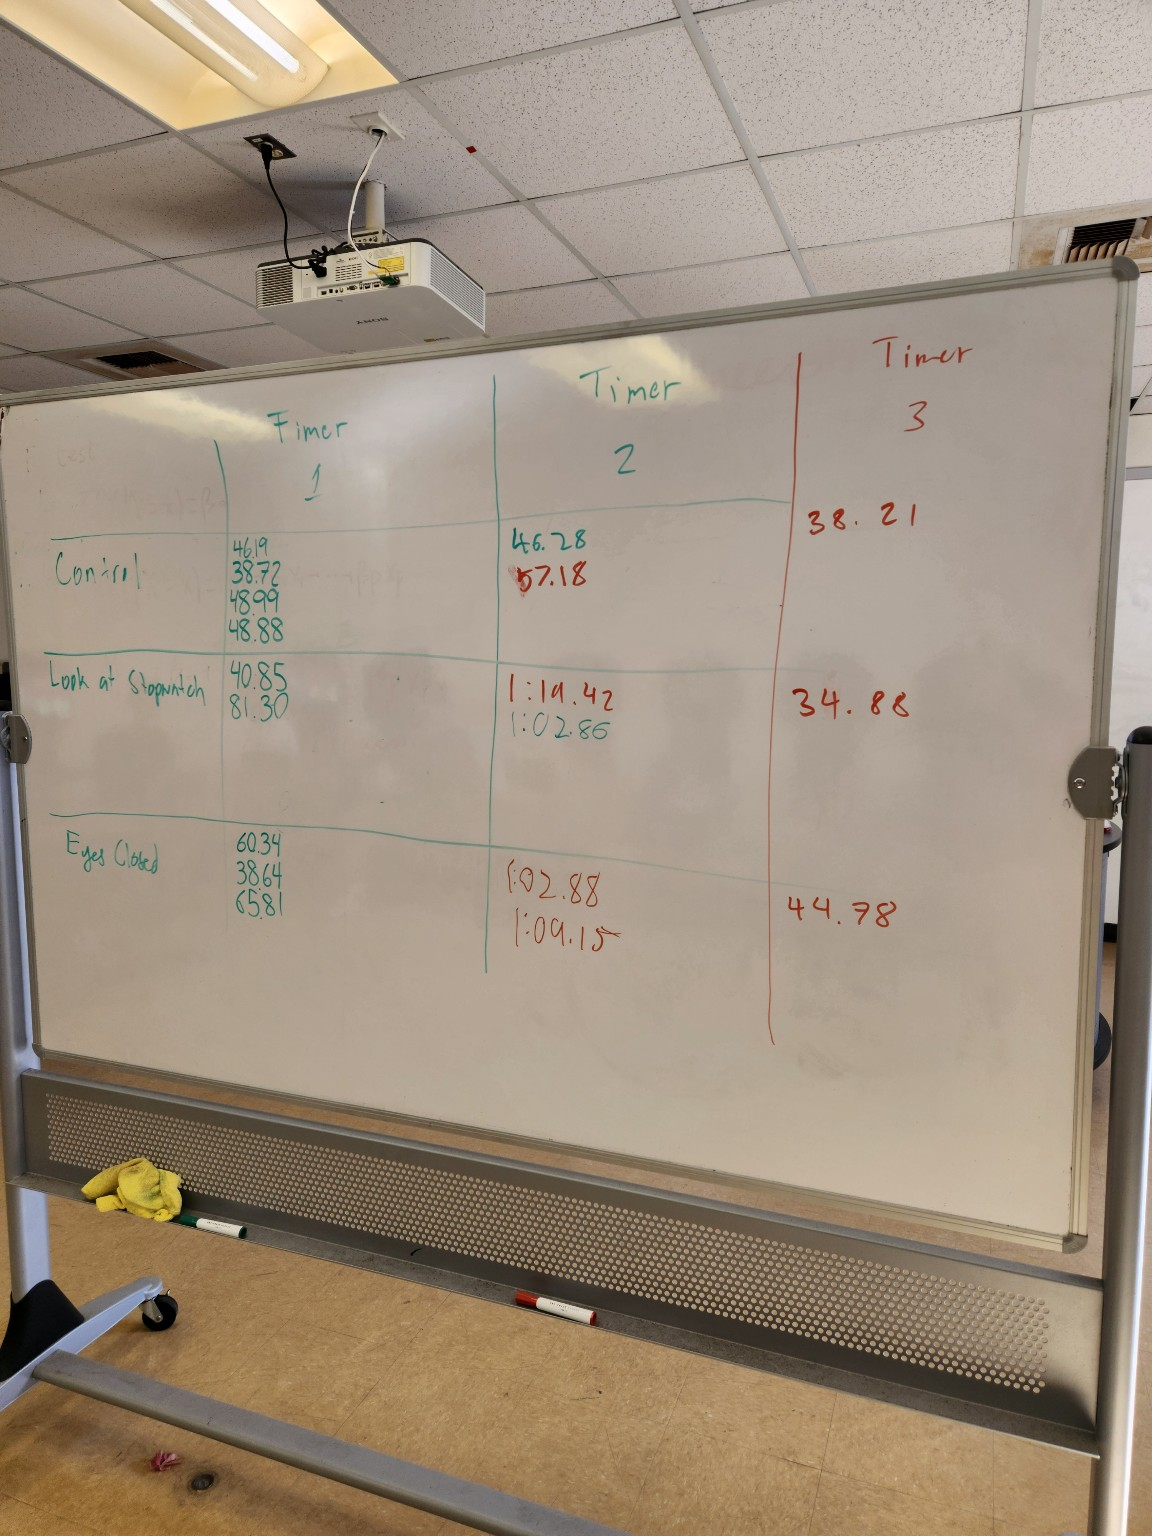 Timer
1
Timer
2
Timer
3
Control
46.19
38.72
48.99
48.88
46.28
57.18
38.21
Look at Stopwatch
40.85
81.30
1:19.42
1:02.86
34.88
Eyes Closed
60.34
38.64
65.81
1:02.88
1:09.15
44.78
SONY